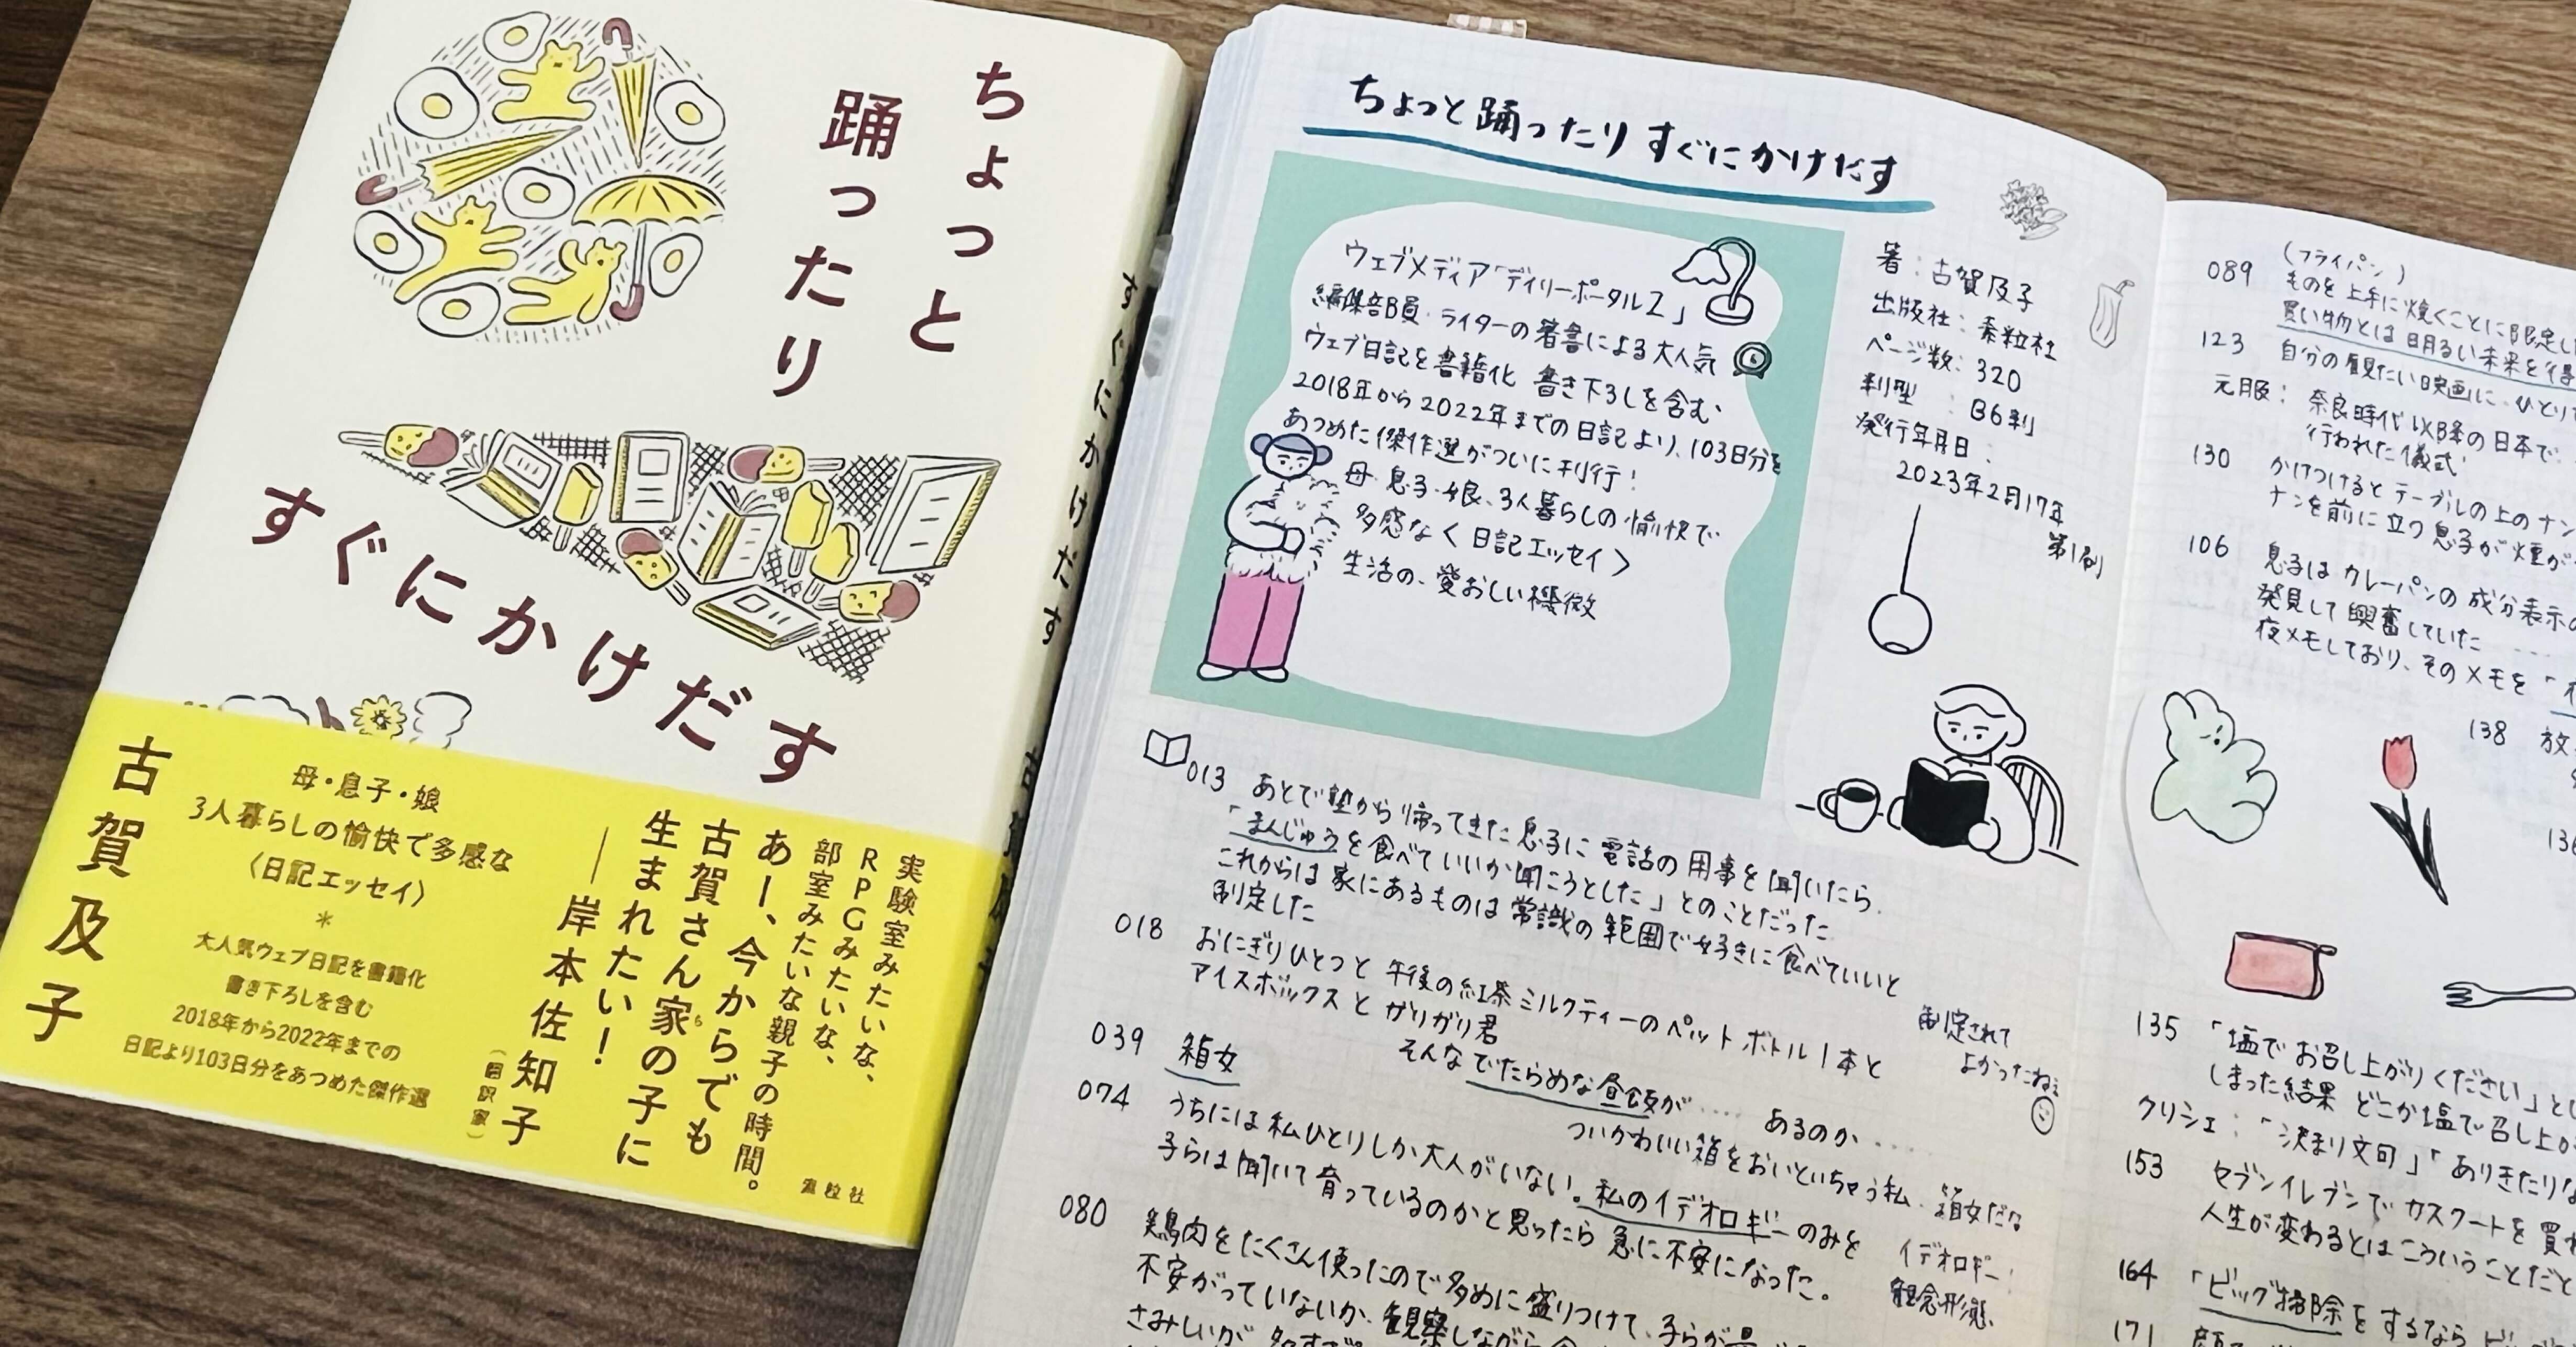 ちょっと
踊ったり
すぐにかけだす
古賀及子
母・息子・娘
3人暮らしの愉快で多感な
〈日記エッセイ〉
*
大人気ウェブ日記を書籍化
書き下ろしを含む
2018年から2022年までの
日記より103日分をあつめた傑作選
実験室みたいな、
RPGみたいな、
部室みたいな親子の時間。
あー、今からでも
古賀さん家の子に
生まれたい!
――岸本佐知子
(翻訳家)
素粒社
すぐにかけだす
ちょっと踊ったりすぐにかけだす
ウェブメディア「デイリーポータルZ」
編集部員・ライターの著書による大人気
ウェブ日記を書籍化 書き下ろしを含む、
2018年から2022年までの日記より、103日分を
あつめた傑作選がついに刊行!
母・息子・娘、3人暮らしの愉快で
多感な〈日記エッセイ〉
生活の、愛おしい機微
著:古賀及子
出版社:素粒社
ページ数:320
判型:B6判
発行年月日:
2023年2月17年
第1刷
013 あとで塾から帰ってきた息子に電話の用事を聞いたら、
「まんじゅうを食べていいか聞こうとした」とのことだった
これからは家にあるものは常識の範囲で好きに食べていいと
制定した
制定されて
よかったね
018 おにぎりひとつと午後の紅茶ミルクティーのペットボトル1本と
アイスボックスとガリガリ君
そんなでたらめな昼飯が……あるのか……
039 箱女
ついかわいい箱をおいといちゃう私、箱女だな
074 うちには私ひとりしか大人がいない。私のイデオロギーのみを
子らは聞いて育っているのかと思ったら急に不安になった。
イデオロギー:
観念形態
080 鶏肉をたくさん使ったので多めに盛りつけて、子らが
不安がっていないか、観察しながら
さみしいが
089 (フライパン)
ものを上手に焼くことに限定し
買い物とは明るい未来を得
123 自分の観たい映画に、ひとり
元服:奈良時代以降の日本で、
行われた儀式
130 かけつけるとテーブルの上のナン
ナンを前に立つ息子が煙が
106 息子はカレーパンの成分表示の
発見して興奮していた……
夜メモしており、そのメモを「
138 放
135 「塩でお召し上がりください」とい
しまった結果どこか塩で召し上が
クリシェ:「決まり文句」「ありきたりな
153 セブンイレブンでカスクートを買
人生が変わるとはこういうことだと
164 「ビッグ掃除をするなら
171